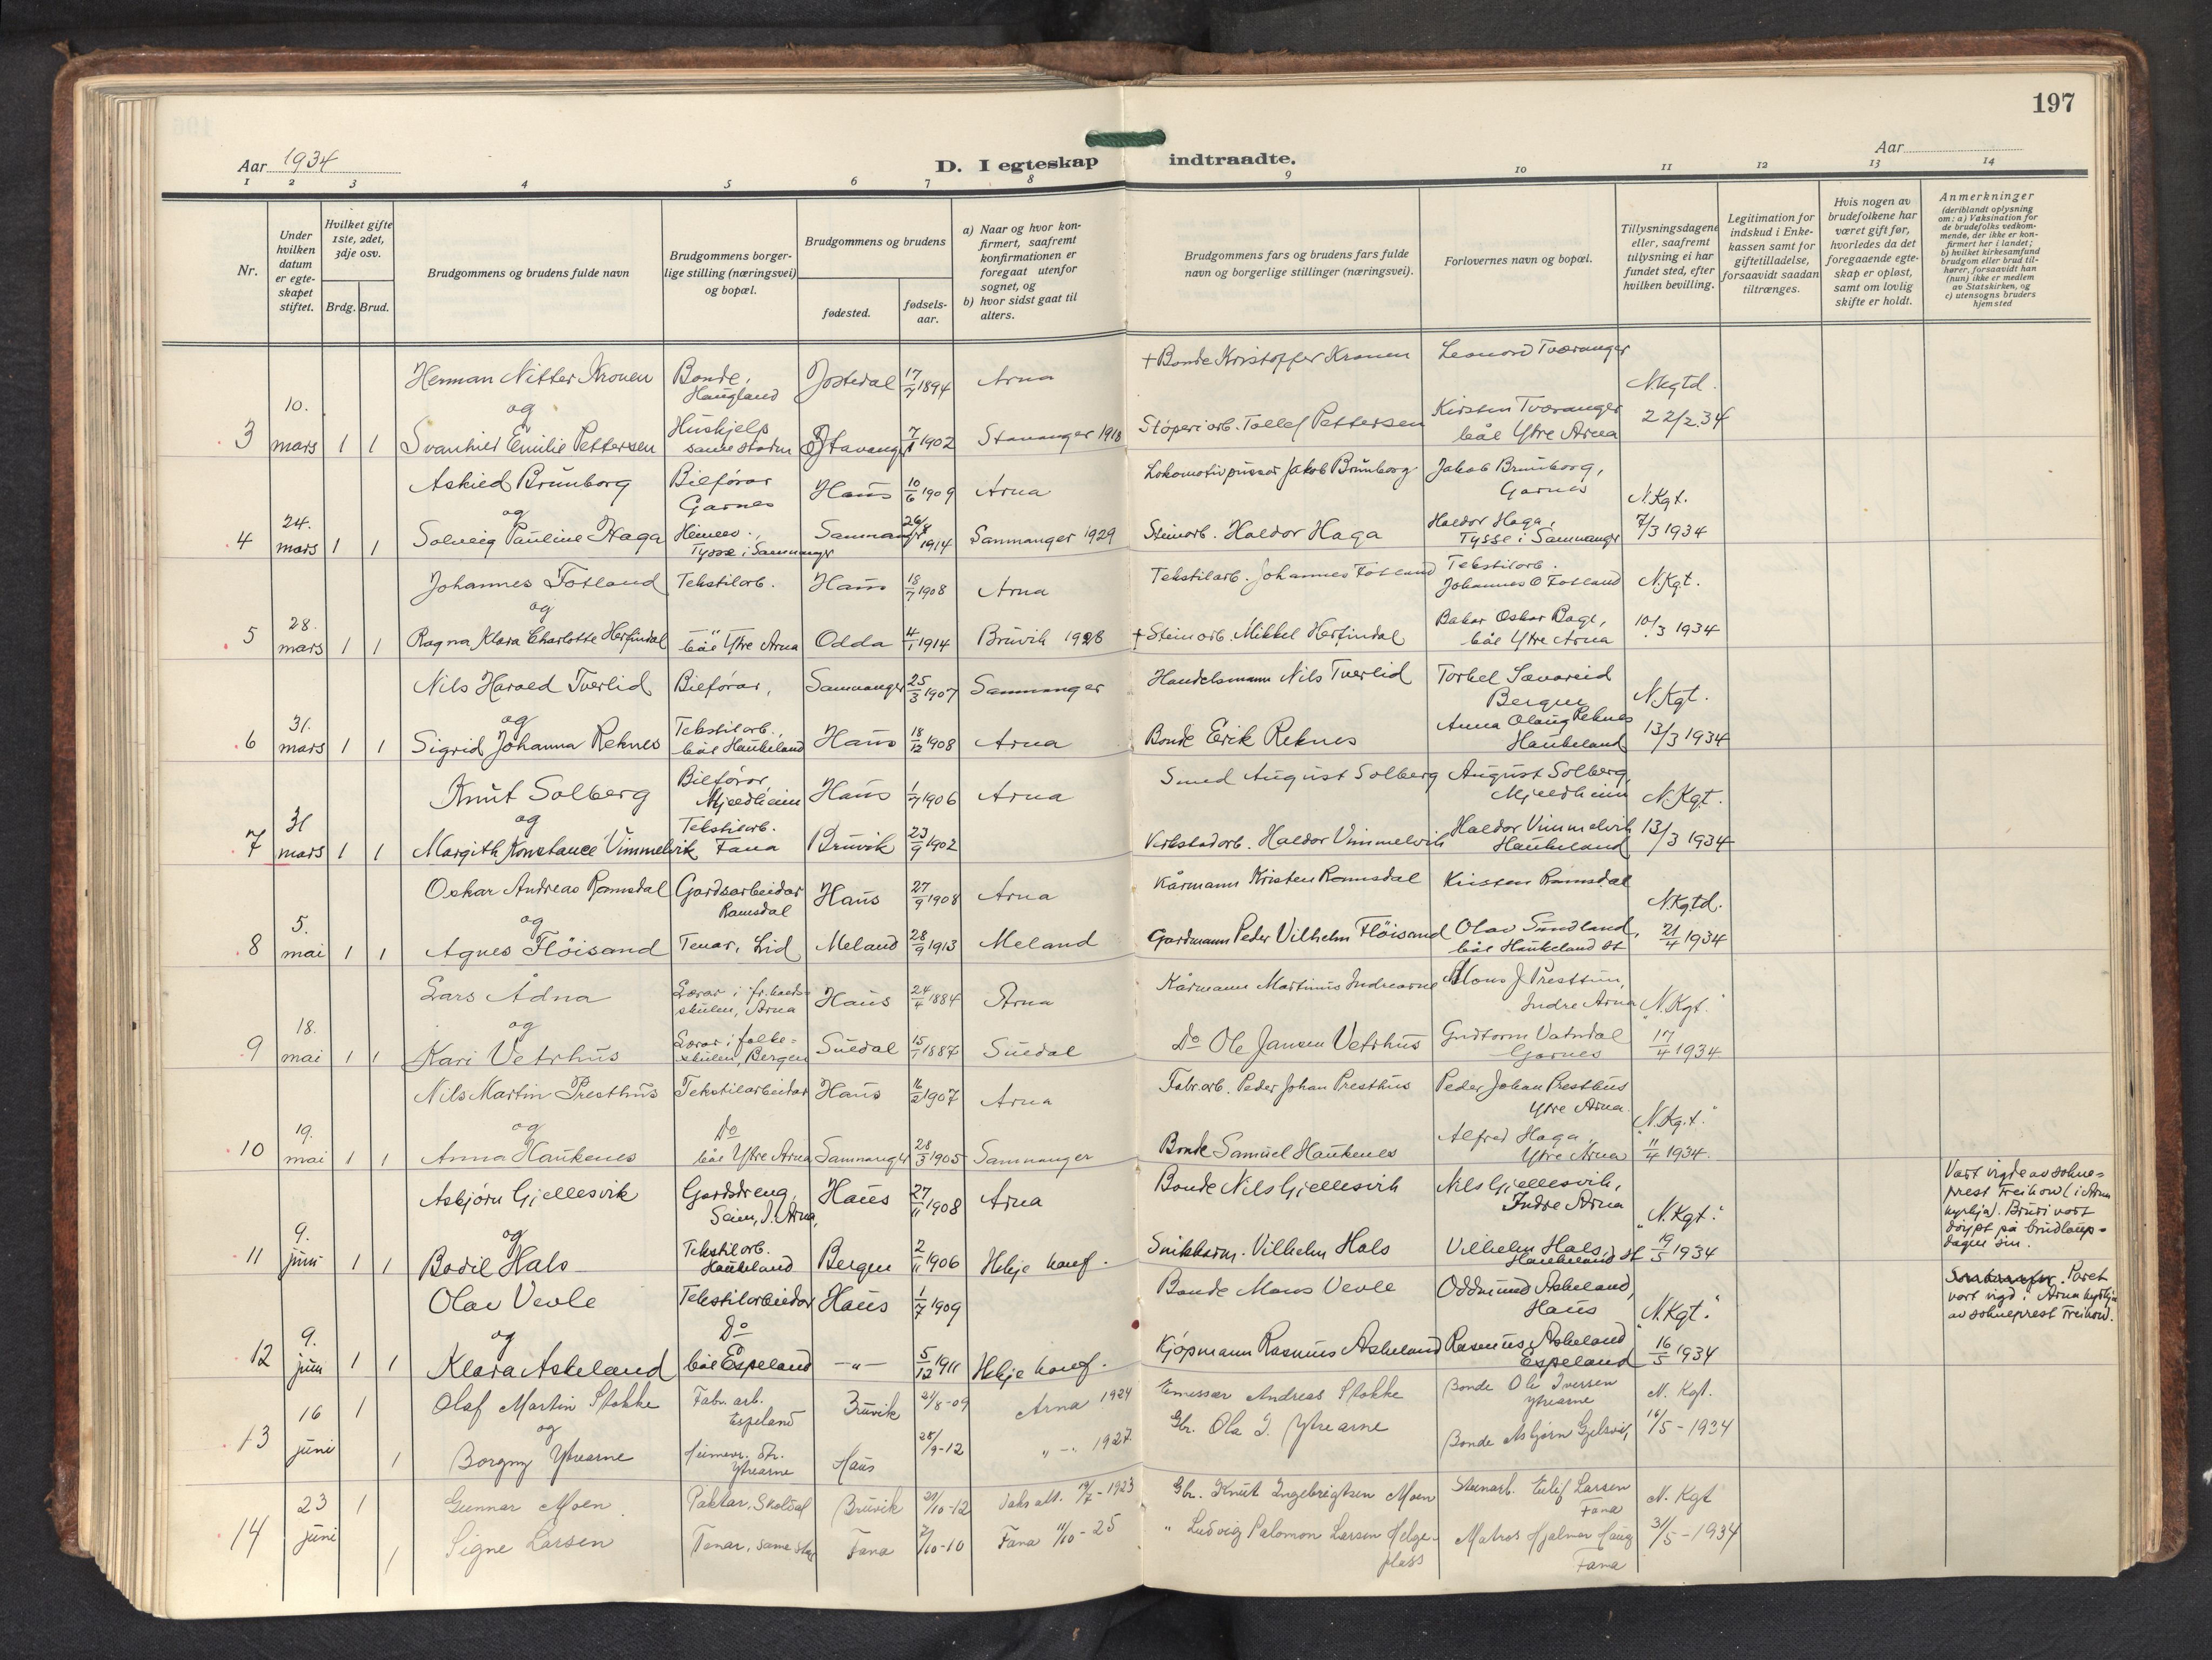 197
Aar 1934
D. I egteskap indtraadte.
Aar
1 2 3 4 5 6 7 8 9 10 11 12 13 14
Nr.
Under hvilken datum er egte-skapet stiftet.
Hvilket gifte 1ste, 2det, 3dje osv.
Brdg. Brud.
Brudgommens og brudens fulde navn
Brudgommens borger-lige stilling (næringsvei) og bopæl.
Brudgommens og brudens
fødested.
fødsels-aar.
a) Naar og hvor kon-firmert, saafremt konfirmationen er foregaat utenfor sognet, og
b) hvor sidst gaat til alters.
Brudgommens fars og brudens fars fulde navn og borgerlige stillinger (næringsvei).
Forlovernes navn og bopæl.
Tillysningsdagene eller, saafremt tillysning ei har fundet sted, efter hvilken bevilling.
Legitimation for indskud i Enke-kassen samt for giftetilladelse, forsaavidt saadan tiltrænges.
Hvis nogen av brudefolkene har været gift før, hvorledes da det foregaaende egte-skap er opløst, samt om lovlig skifte er holdt.
Anmerkninger
(deriblandt oplysning om: a) Vaksination for de brudefolks vedkom-mende, der ikke er kon-firmert her i landet; b) hvilket kirkesamfund brudgom eller brud til-hører, forsaavidt han (hun) ikke er medlem av Statskirken, og c) utensogns bruders hjemsted
Herman Nitter Kronen Bonde, Haugland Jostedal 17/7 1894 Arna + Bonde Kristoffer Kronen Leonord Tværanger N.kgtd.
og
3 10. mars 1 1 Svanhild Emilie Pettersen Hushjelp samestadn Stavanger 7/8 1902 Stavanger 1918 Støperiarb. Tollef Pettersen Kirsten Tværanger båe Ytre Arna 22/2.34
Askild Brunborg Bilførar Garnes Haus 10/6 1909 Arna Lokomotivpussar Jakob Brunborg Jakob Brunborg, Garnes N.Kgt.
og
4 24. mars 1 1 Solveig Pauline Haga Heimev., Tysse i Samnanger Samnanger 26/8 1914 Samnanger 1929 Steinarb. Haldor Haga Haldor Haga, Tysse i Samnanger 7/3 1934
Johannes Fotland Tekstilarb. Haus 18/7 1908 Arna Tekstilarb. Johannes Fotland Tekstilarb. Johannes O Fotland N.Kgt.
og
5 28. mars 1 1 Ragna Klara Charlotte Herfindal båe Ytre Arna Odda 4/1 1914 Bruvik 1928 + Steinarb. Mikkel Herfindal Bakar Oskar Bage, båe Ytre Arna 10/3 1934
Nils Harald Tverlid Bilførar, Samnanger 25/3 1907 Samnanger Handelsmann Nils Tverlid Torkel Sævareid Bergen N.Kgt.
og
6 31. mars 1 1 Sigrid Johanna Reknes Tekstilarb., båe Haukeland Haus 18/12 1908 Arna Bonde Erik Reknes Anna Olaug Reknes Haukeland 13/3 1934
Knut Solberg Bilførar, Mjeldheim Haus 1/7 1906 Arna Smed August Solberg August Solberg, Mjeldheim N.Kgt.
og
7 31 mars 1 1 Margith Konstance Vimmelvik Tekstilarb. Fana Bruvik 23/9 1902 Verkstadarb. Haldor Vimmelvik Haldor Vimmelvik Haukeland 13/3 1934
Oskar Andreas Ramsdal Gardsarbeidar Ramsdal Haus 27/9 1908 Arna Kårmann Kristen Ramsdal Kristen Ramsdal N.Kgtd.
og
8 5. mai 1 1 Agnes Fløisand Tenar, Lid Meland 28/9 1913 Meland Gardmann Peder Vilhelm Fløisand Olav Sundland, båe Haukeland St 21/4 1934
Lars Ådna Lærar i fr.halds-skulen, Arna Haus 24/4 1884 Arna Kårmann Martinus Indrearne Mons J Presttun, Indre Arna "N.Kgt."
og
9 18. mai 1 1 Kari Vetrhus Lærar i folke-skulen, Bergen Suldal 15/1 1887 Suldal Do Ole Jansen Vetrhus Gudtorm Vatndal Garnes 17/4 1934
Nils Martin Presthus Tekstilarbeidar Haus 16/2 1907 Arna Fabr.arb. Peder Johan Presthus Peder Johan Presthus Ytre Arna "N.Kgt."
og
10 19. mai 1 1 Anna Haukenes Do båe Ytre Arna Samnanger 28/3 1905 Samnanger Bonde Samuel Haukenes Alfred Haga, Ytre Arna 11/4 1934.
Asbjørn Gjellesvik Gardsdreng, Seim, I. Arna, Haus 27/11 1908 Arna Bonde Nils Gjellesvik Nils Gjellesvik, Indre Arna "N.Kgt." Vart vigde av sokne-prest Treihow (i Arna kyrkja). Bruri vart døypt på brudlaups-dagen sin.
og
11 9. juni 1 1 Bodil Hals Tekstilarb. Haukeland Bergen 2/11 1906 Ikkje konf. Snikkarm. Vilhelm Hals Vilhelm Hals, Haukeland St 19/5 1934
Olav Vevle Tekstilarbeidar Haus 1/7 1909 Bonde Mons Vevle Oddmund Askeland, Haus "N.Kgt." Paret vart vigd i Arna kyrkja av sokneprest Treihow.
og
12 9. juni 1 1 Klara Askeland Do båe Espeland -"- 5/12 1911 Ikkje konf. Kjøpmann Rasmus Askeland Rasmus Askeland Espeland 16/5 1934
Olaf Martin Stokke Fabr. arb. Espeland Bruvik 21/8-09 Arna 1924 Emissær Andreas Stokke Bonde Ole Iversen Ytrearne N. Kgt.
og
13 16 juni 1 1 Borgny Ytrearne Heimev. str. Ytrearne Haus 28/9-12 " -" 1927. Gbr. Ola I. Ytrearne Bonde Asbjørn Gjelsvik, 16/5-1934
14 23 juni 1 Gunnar Moen Paktar, Skoldal Bruvik 21/10-12 Vaksdal. 19/7-1923 Gbr. Knut Ingebrigtsen Moen Steinarb. Eilif Larsen Fana N. Kgt
1 Signe Larsen Tenar, same stad Fana 7/10-10 Fana 11/10-25 " Ludvig Salomon Larsen Helge-pless Matros Hjalmar Haug Fana 31/5-1934